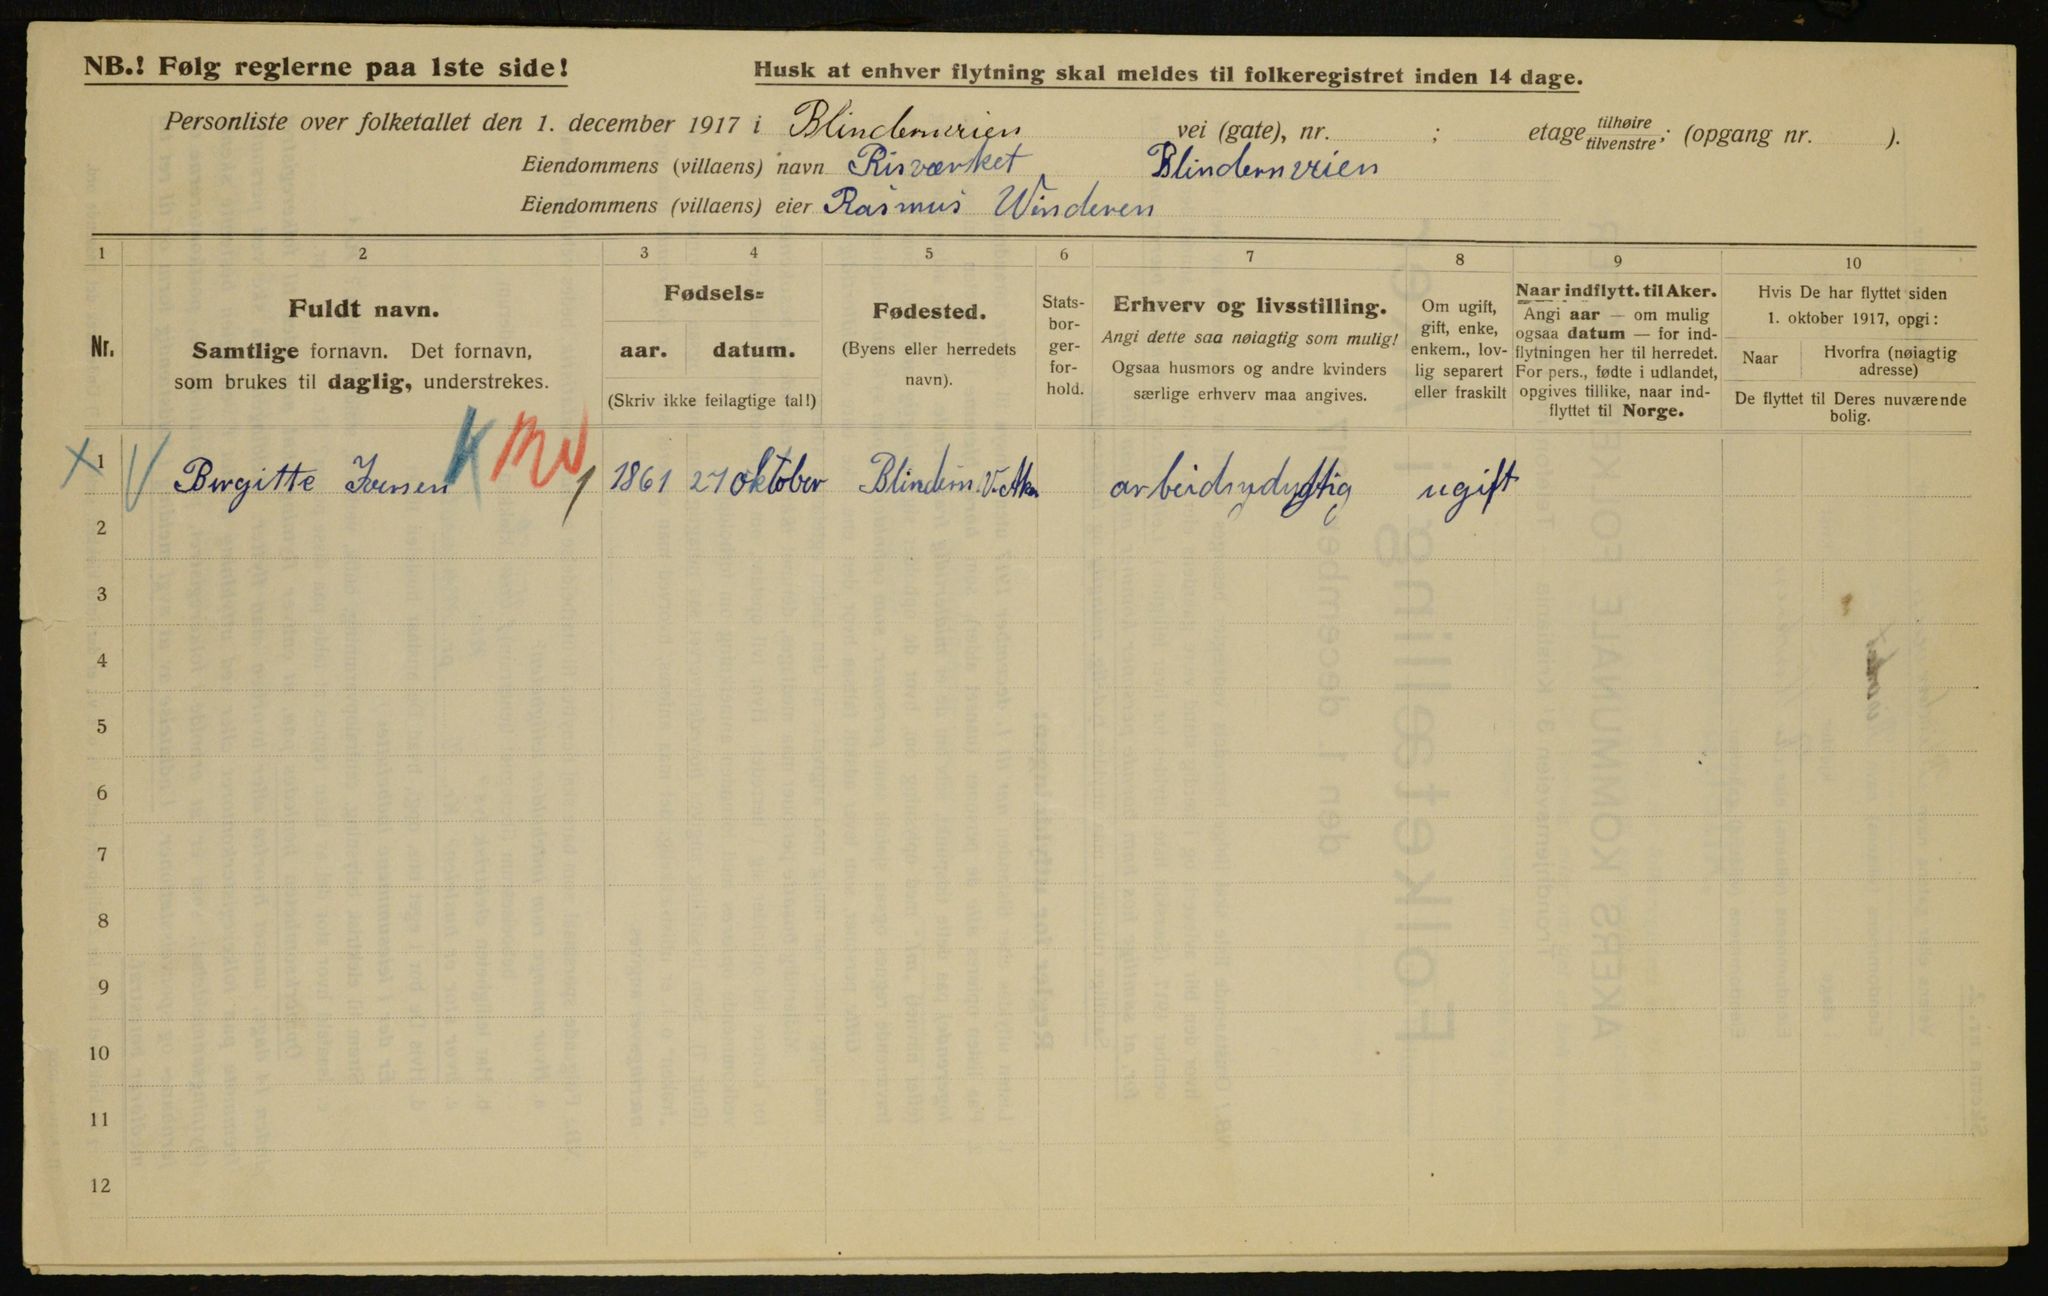 NB.! Følg reglerne paa 1ste side!
Husk at enhver flytning skal meldes til folkeregistret inden 14 dage.
Personliste over folketallet den 1. december 1917 i Blindernveien vei (gate), nr. ; etage tilhøire tilvenstre; (opgang nr. ).
Eiendommens (villaens) navn Risværket Blindernveien
Eiendommens (villaens) eier Rasmus Winderen
1 2 3 4 5 6 7 8 9 10
Nr.
Fuldt navn.
Samtlige fornavn. Det fornavn,
som brukes til daglig, understrekes.
Fødsels=
aar. datum.
(Skriv ikke feilagtige tal!)
Fødested.
(Byens eller herredets
navn).
Stats-
bor-
ger-
for-
hold.
Erhverv og livsstilling.
Angi dette saa nøiagtig som mulig!
Ogsaa husmors og andre kvinders
særlige erhverv maa angives.
Om ugift,
gift, enke,
enkem., lov-
lig separert
eller fraskilt
Naar indflytt. til Aker.
Angi aar — om mulig
ogsaa datum — for ind-
flytningen her til herredet.
For pers., fødte i udlandet,
opgives tillike, naar ind-
flyttet til Norge.
Hvis De har flyttet siden
1. oktober 1917, opgi:
Naar
Hvorfra (nøiagtig
adresse)
De flyttet til Deres nuværende
bolig.
K
1 Birgitte Iversen 1 1861 27 oktober Blindern V. Aker ugift
2
3
4
5
6
7
8
9
10
11
12